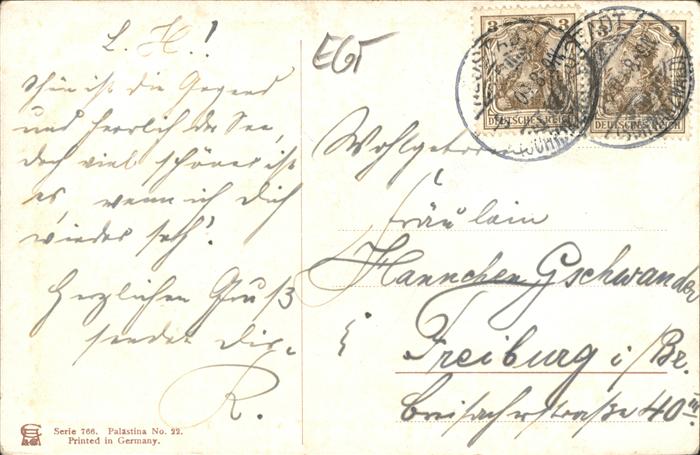 L. H.!
Schön ist die Gegend
und herrlich der See,
doch viel schöner ist
es, wenn ich dich
wieder seh'!
Herzlichen Gruß
sendet dir
R.
EGT
3 3
DEUTSCHES REICH
3
DEUTSCHES REICH
Wohlgeboren
Fräulein
Hannchen Gschwander
Freiburg i/Br.
Breisacherstraße 40III
Serie 766. Palästina No. 22.
Printed in Germany.